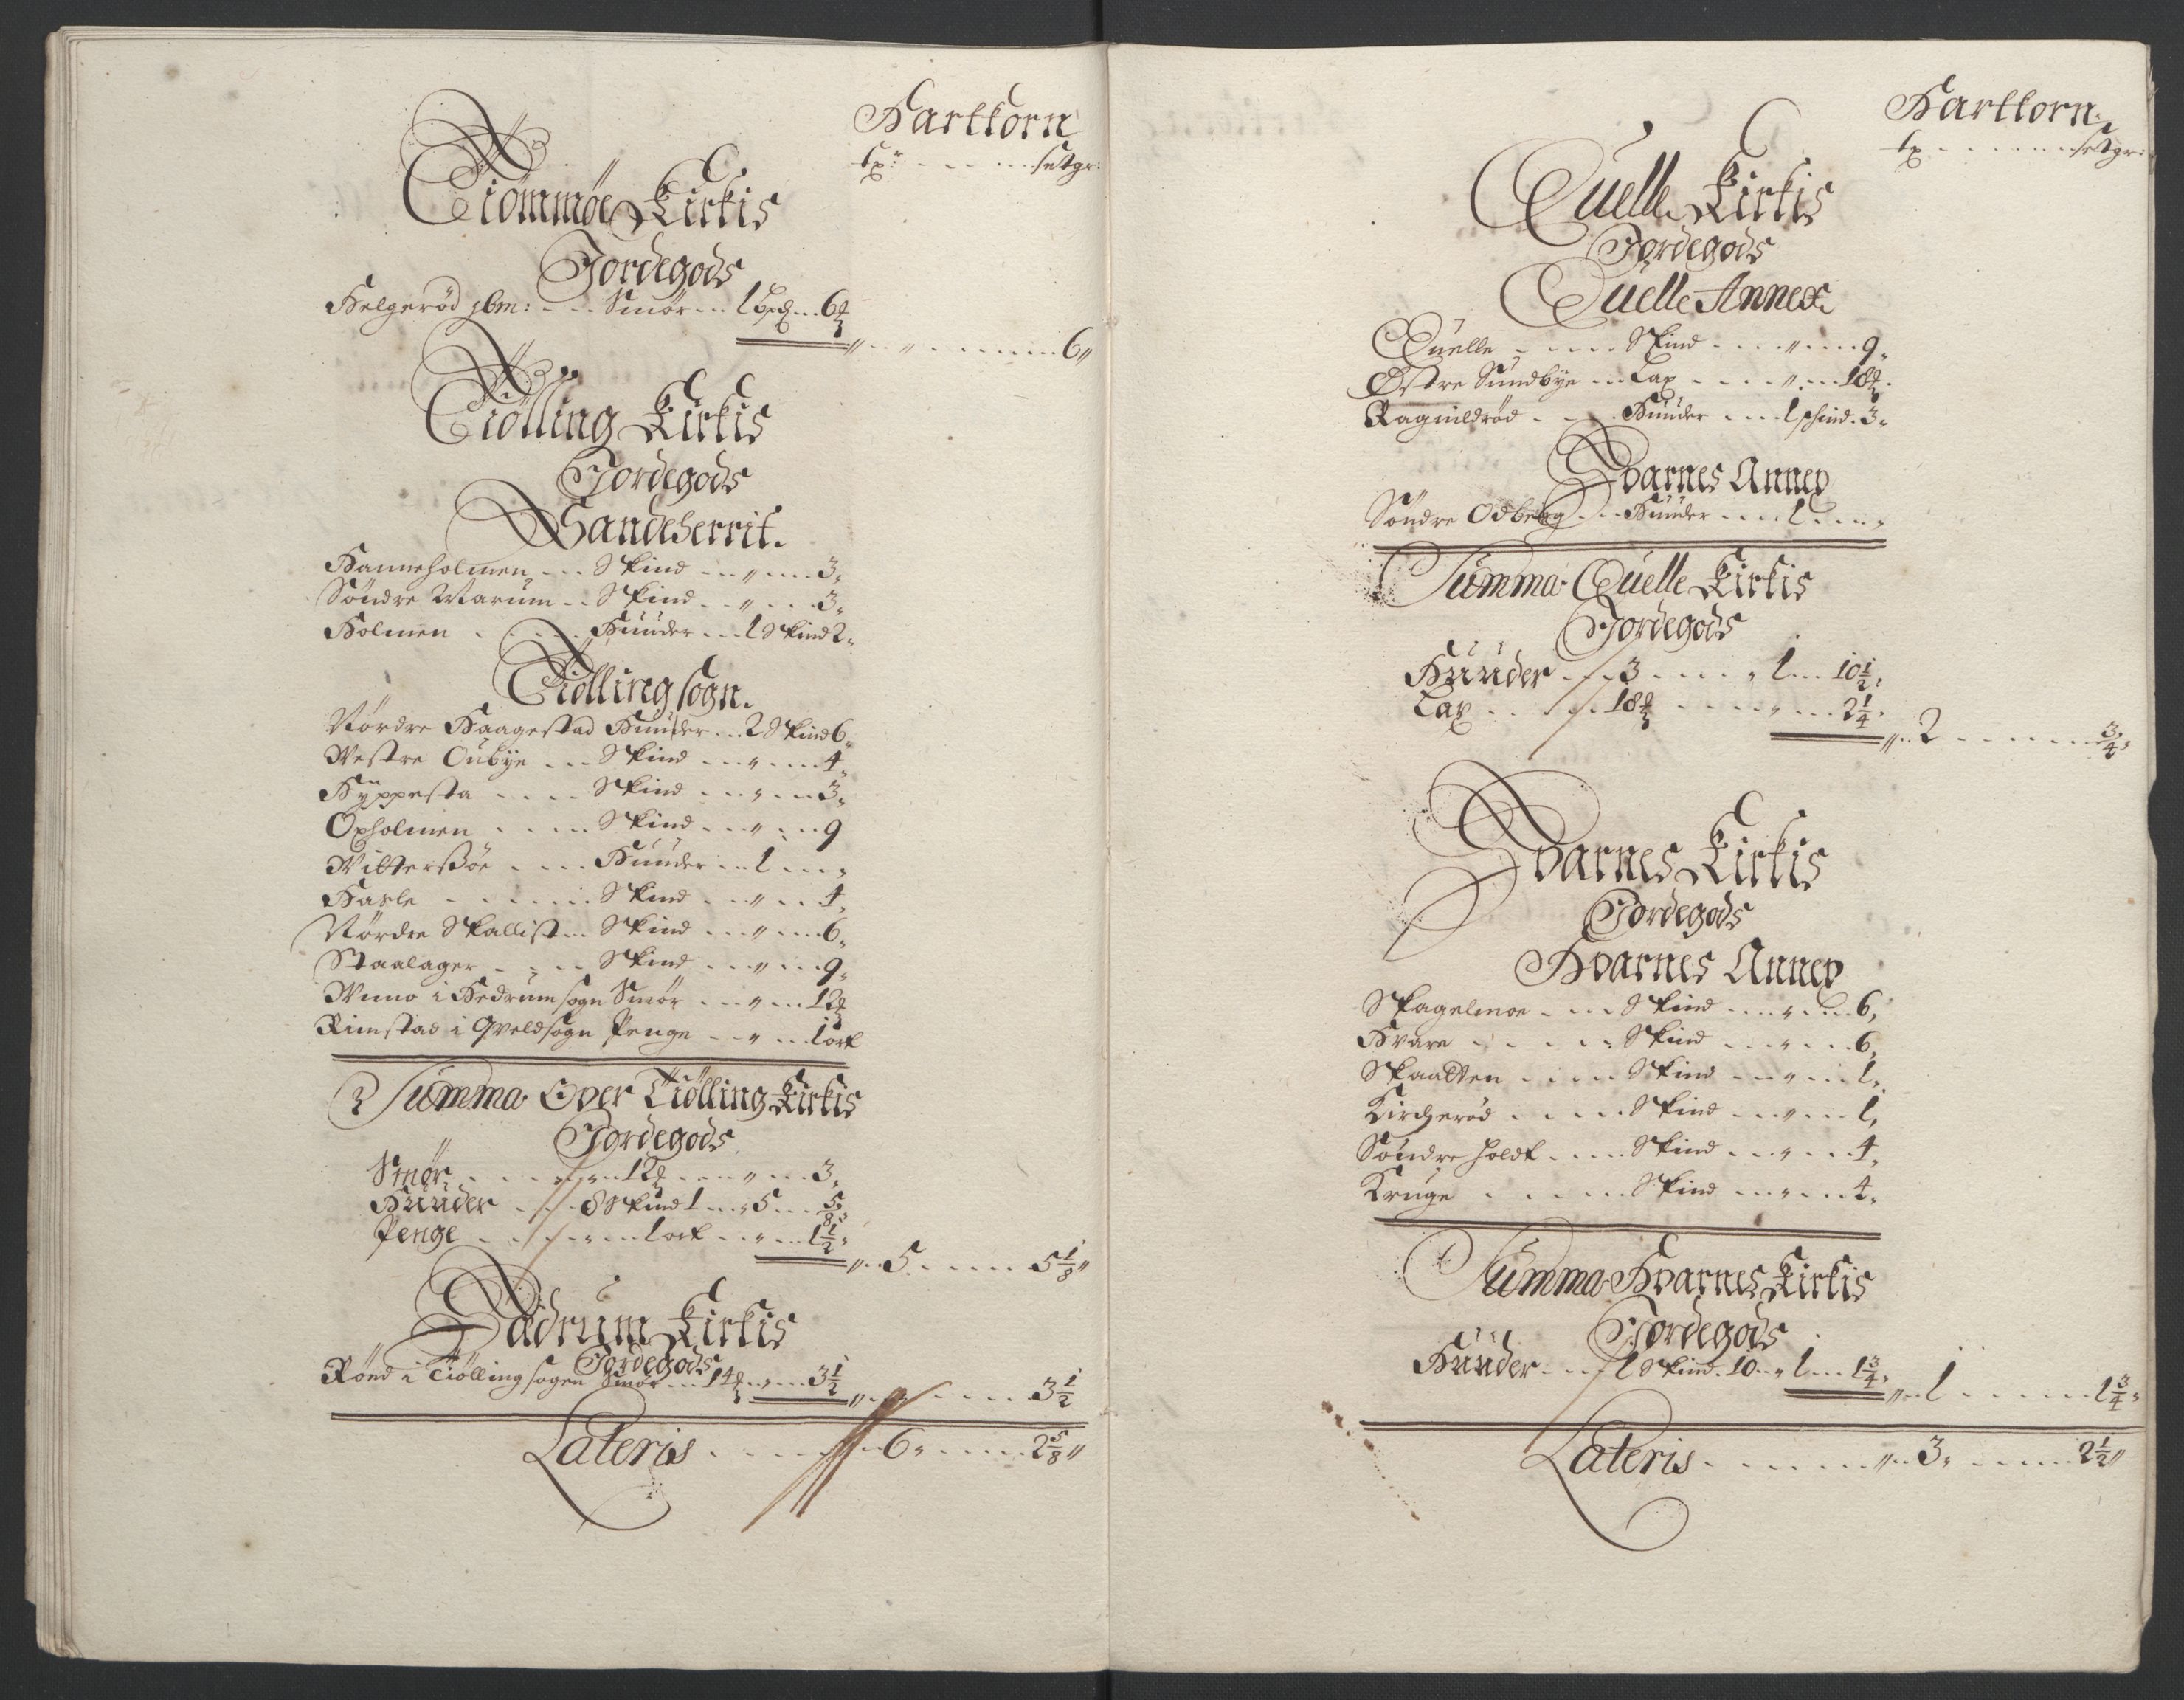 Hartkorn
tr: - - - setgr:
Tiømmøe Kirkis
Jordegods
Helgerød gbm: - - - Smør - - - 1 Bpd - - 6 ℔
〃 - - 〃 - - - - - - 6〃
Tiølling Kirkis
Jordegods
Sandeherrit.
Hanneholmen - - - Skind - - - 〃 - - - 3,
Søndre Warum - - Skind - - 〃 - - - 3,
Holmen - - - - Huuder - - - 1 Skind 2,
Tiølling sogn.
Nørdre Haagestad Huuder - - - 2 Skind 6,
Westre Oubye - - - Skind - - - 〃 - - - 4,
Hÿppesta - - - - Skind - - - 〃 - - - 3,
Oxholmen - - - - Skind - - - 〃 - - - 9
Witterssøe - - - - Huuder - - - 1 - - - 〃
Hasle - - - - - Skind - - - 〃 - - - 4,
Nørdre Skallist - - - Skind - - - 〃 - - - 6,
Staalager - - - - Skind - - - 〃 - - - 9,
Wuno i Hedrum sogn Smør - - - 〃 - - - 12 ℔
Rimstad i Qveldsogn Penge - - 〃 - - - 1 ort
Summa Over Tiølling Kirkis
Jordegods
Smør - - - - 12 ℔ - - - 〃 - - - 3,
Huuder - - - 8 Skind 1 - - 〃 5 - - - 5/8,
Penge - - - 〃 - - - 1 ort - - 〃 - - - 1 1/2,
〃 - - 5 - - - - - 5 1/8〃
Hædrum Kirkis
Jordegods
Rønd i Tiølling sogen Smør - - - 14 ℔ - - 〃 - - - 3 1/2
〃 - - 〃 - - - - - 3 1/2
Lateris - - - - - 6, - - - - - 2 5/8〃
Hartkorn
tr - - - - - - setgr:
Quelle Kirkis
Jordegods
Quelle Annex
Quelle - - - - Skind - - - - 〃 - - - - 9,
Østre Sundbye - - - Lax - - - - 〃 - - - 18 ℔
Ragnildrød - - - Huuder - - - 1 schind. 3,
Hvarnes Annex
Søndre Odberg - - - Huuder - - - - 1 - - - 〃
Summa Quelle Kirkis
Jordegods
Huuder - - - 3 - - - - 〃 1 - - - 10 1/2,
Lax - - - - 18 ℔ - - - - 〃 - - - 2 1/4,
〃 - - 2 - - - - - - 3/4,
Hvarnes Kirkis
Jordegods
Hvarnes Annex
Skagelmoe - - - Skind - - - - 〃 - - - 6,
Hvare - - - - - Skind - - - 〃 - - - 6,
Skaatten - - - - Skind - - - 〃 - - - 1,
Kircherød - - - - Skind - - - 〃 - - - 1,
Søndre holdt - - - - Skind - - - 〃 - - - 4,
Kruge - - - - - Skind - - - 〃 - - - 4,
Summa Hvarnes Kirkis
Jordegods
Huuder - - - 1 Skind. 10 - - 〃 1 - - - 1 3/4,
〃 - - 1 - - - - - - 1 3/4,
Lateris - - - - - - 〃 - - 3, - - - - - 2 1/2〃